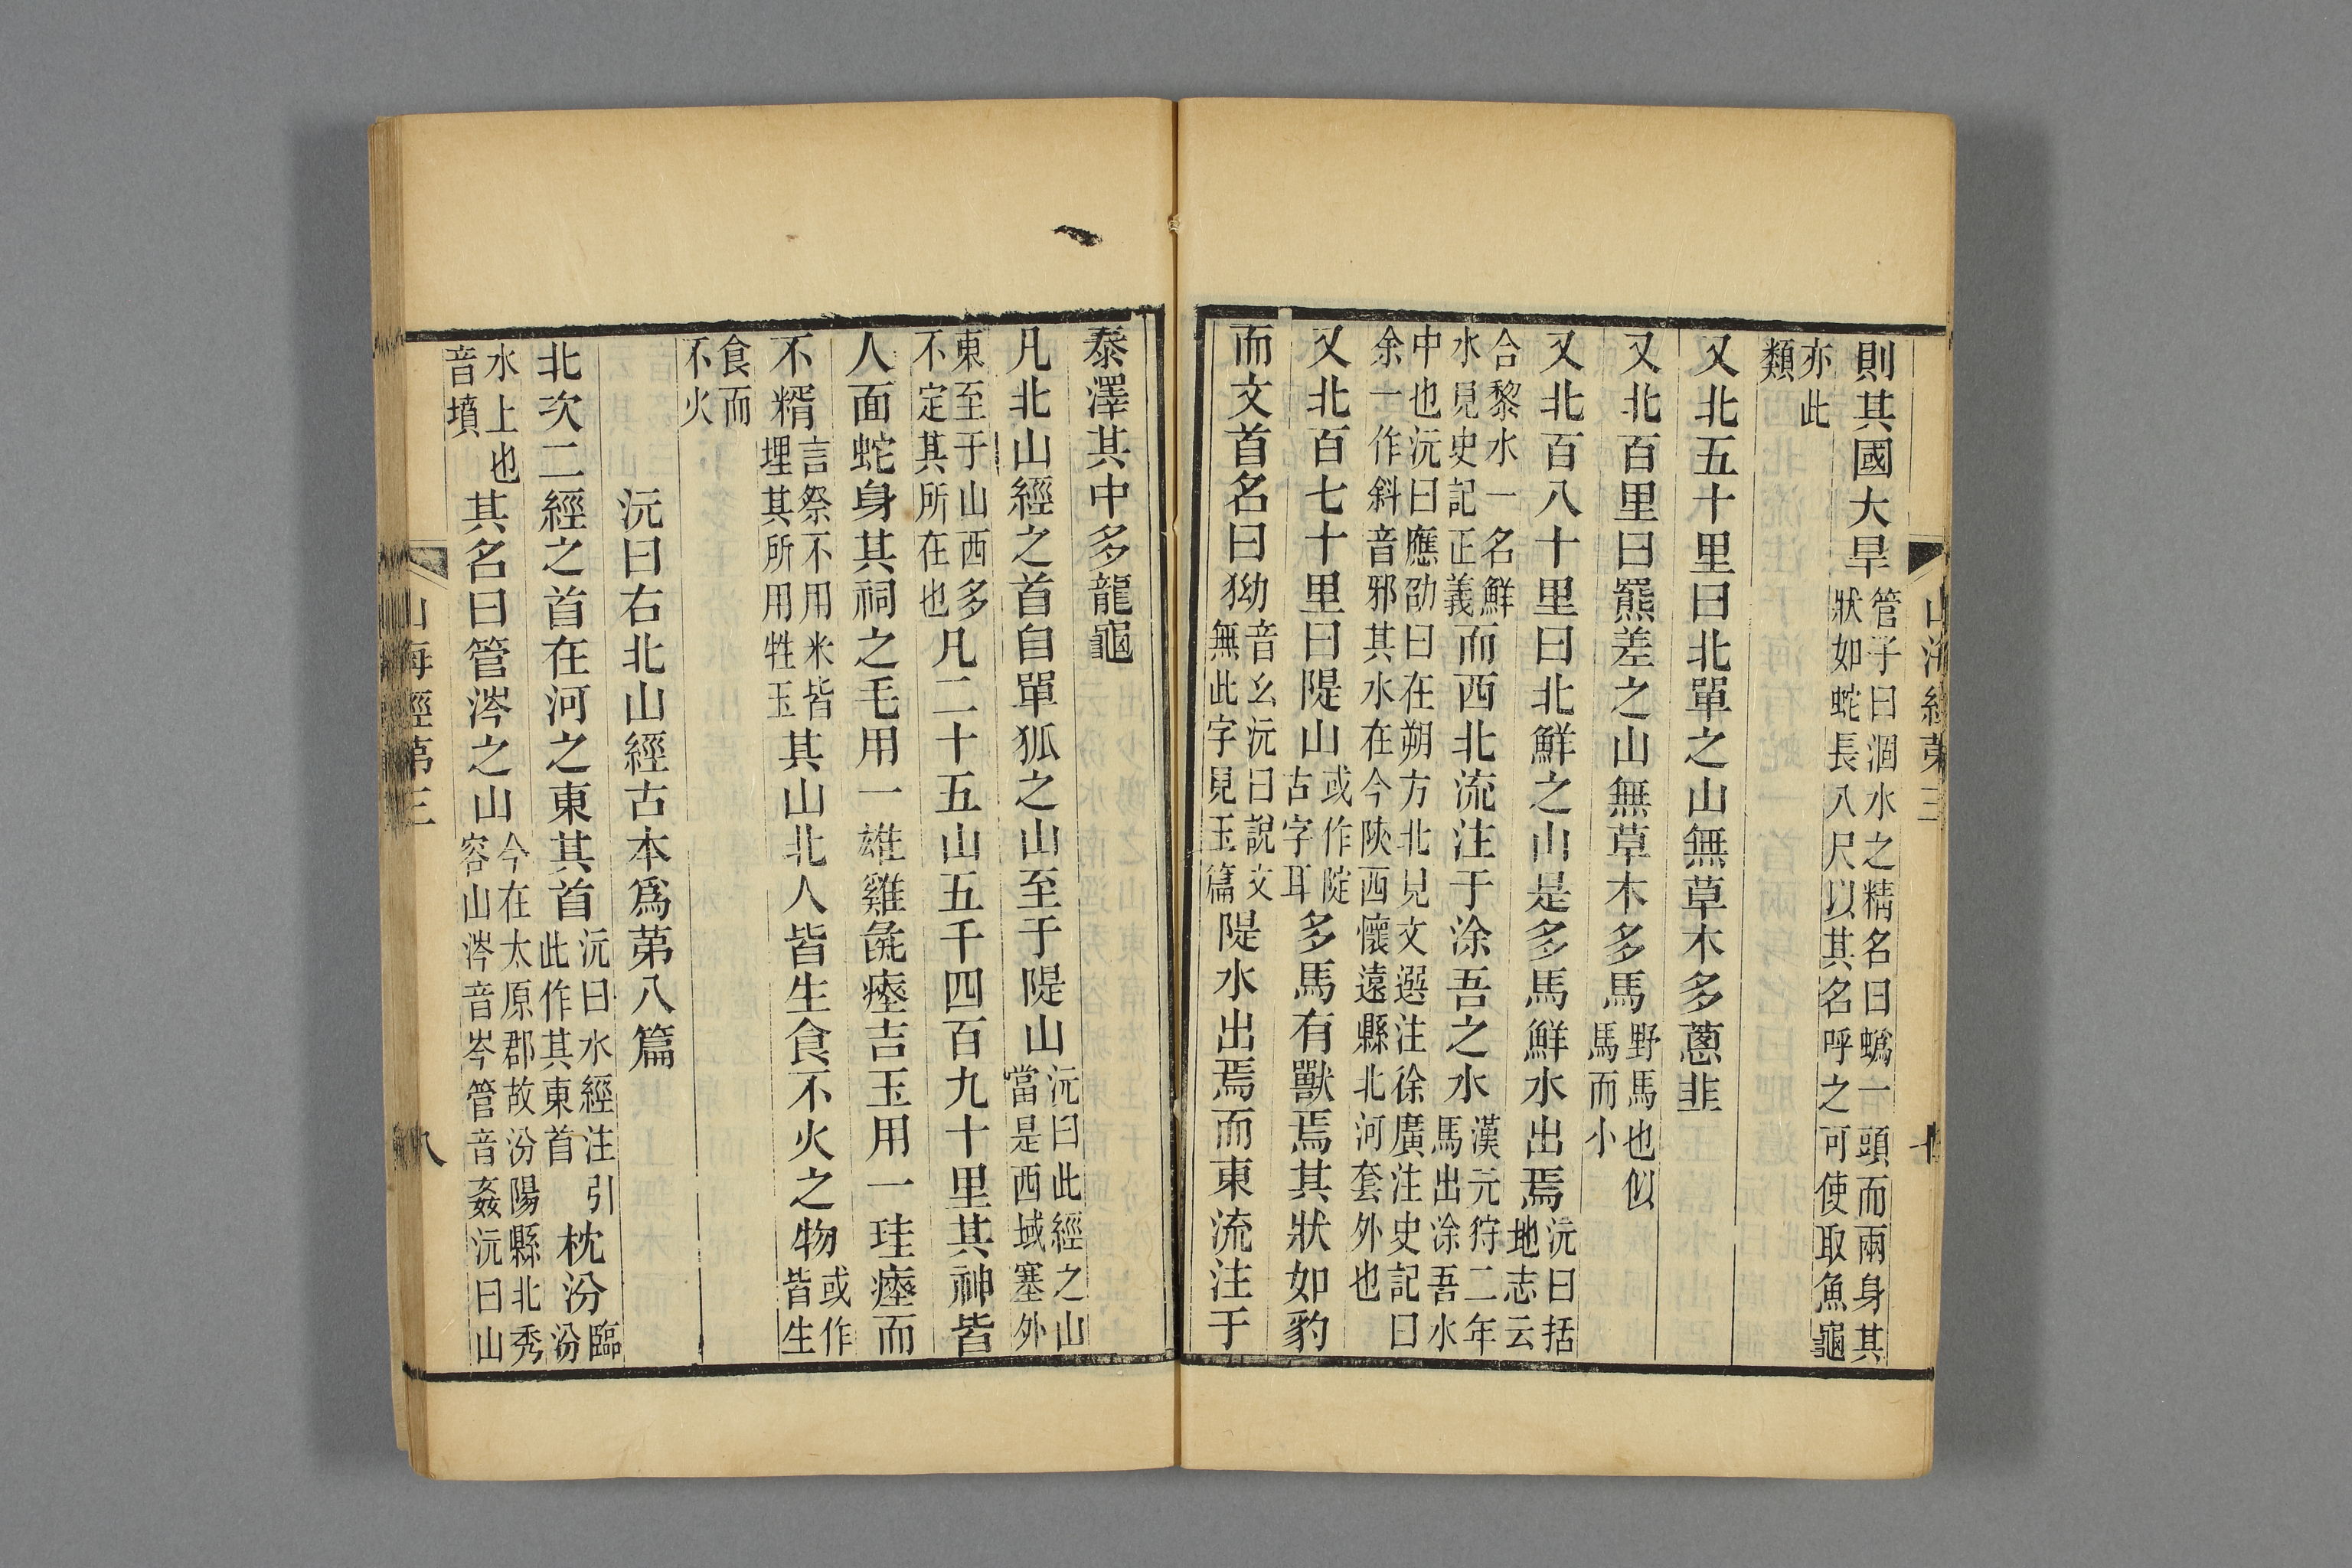 山海經第三
七
則其國大旱管子曰涸水之精名曰蟡一頭而兩身其狀如蛇長八尺以其名呼之可使取魚龜
亦此類
又北五十里曰北單之山無草木多蔥韭
又北百里曰羆差之山無草木多馬野馬也似馬而小
又北百八十里曰北鮮之山是多馬鮮水出焉沅曰括地志云
合黎水一名鮮水見史記正義而西北流注于涂吾之水漢元狩二年馬出涂吾水
中也沅曰應劭曰在朔方北見文選注徐廣注史記曰余一作斜音邪其水在今陝西懷遠縣北河套外也
又北百七十里曰隄山或作隄古字耳多馬有獸焉其狀如豹
而文首名曰狕音幺沅曰說文無此字見玉篇隄水出焉而東流注于
泰澤其中多龍龜
凡北山經之首自單狐之山至于隄山沅曰此經之山當是西域塞外
東至于山西多不定其所在也凡二十五山五千四百九十里其神皆
人面蛇身其祠之毛用一雄雞彘瘞吉玉用一珪瘞而
不糈言祭不用米皆埋其所用牲玉其山北人皆生食不火之物或作皆生
食而不火
沅曰右北山經古本爲第八篇
北次二經之首在河之東其首沅曰水經注引此作其東首枕汾臨汾
水上也音墳其名曰管涔之山今在太原郡故汾陽縣北秀容山涔音岑管音姦沅曰山
山海經第三
八